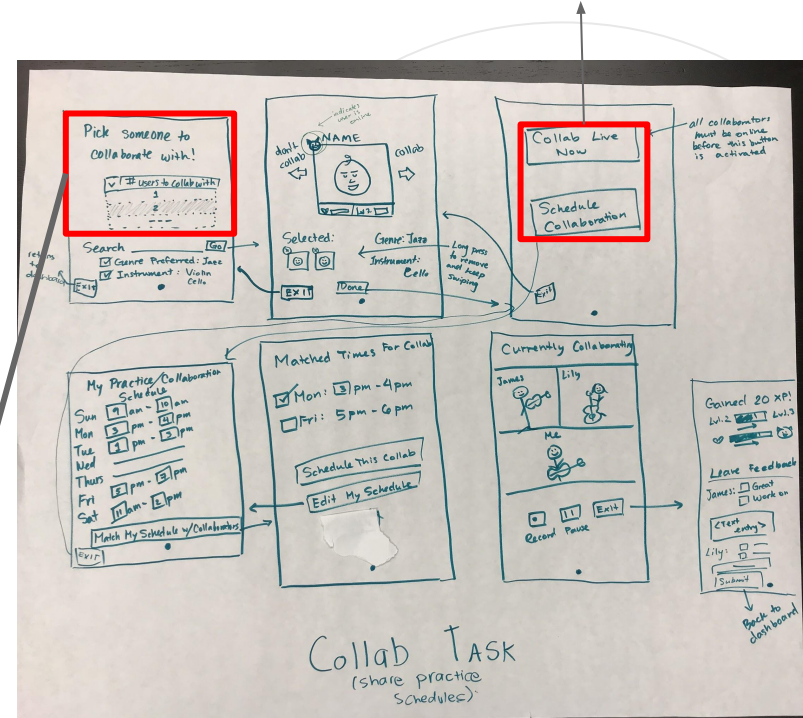 Pick someone to
collaborate with!
# users to collab with
1
2
Search
Go
Genre Preferred: Jazz
Instrument: Violin
Cello
Exit
returns
to
dashboard
indicates
user is
online
NAME
don't
collab
collab
Lvl 2
Selected:
Genre: Jazz
Instrument:
Cello
EXIT
Done
Long press
to remove
and keep
swiping
Collab Live
Now
Schedule
Collaboration
Exit
all collaborators
must be online
before this button
is activated
My Practice/Collaboration
Schedule
Sun 9 am - 10 am
Mon 3 pm - 4 pm
Tue 1 pm - 2 pm
Wed
Thurs
Fri 5 pm - 7 pm
Sat 11 am - 2 pm
Match My Schedule w/Collaborators
Exit
Matched Times For Collab
Mon: 3 pm - 4pm
Fri: 5 pm - 6 pm
Schedule This Collab
Edit My Schedule
Currently Collaborating
James
Lily
Me
Record
Pause
Exit
Gained 20 XP!
Lvl.2
Lvl.3
Leave Feedback
James: Great
Work on
<Text
entry>
Lily:
Submit
Back to
dashboard
Collab TASK
(share practice
schedules)